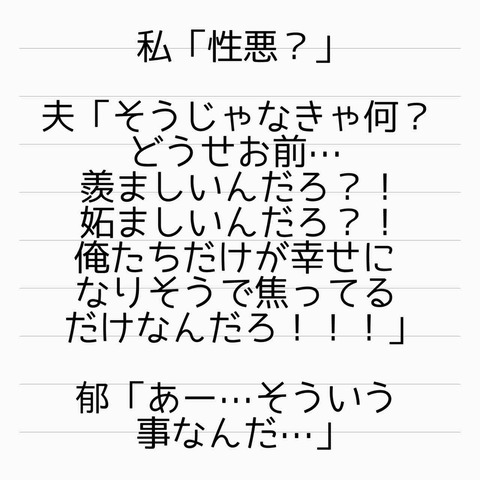 私「性悪？」
夫「そうじゃなきゃ何？
どうせお前…
羨ましいんだろ？！
妬ましいんだろ？！
俺たちだけが幸せに
なりそうで焦ってる
だけなんだろ！！！」
郁「あー…そういう
事なんだ…」